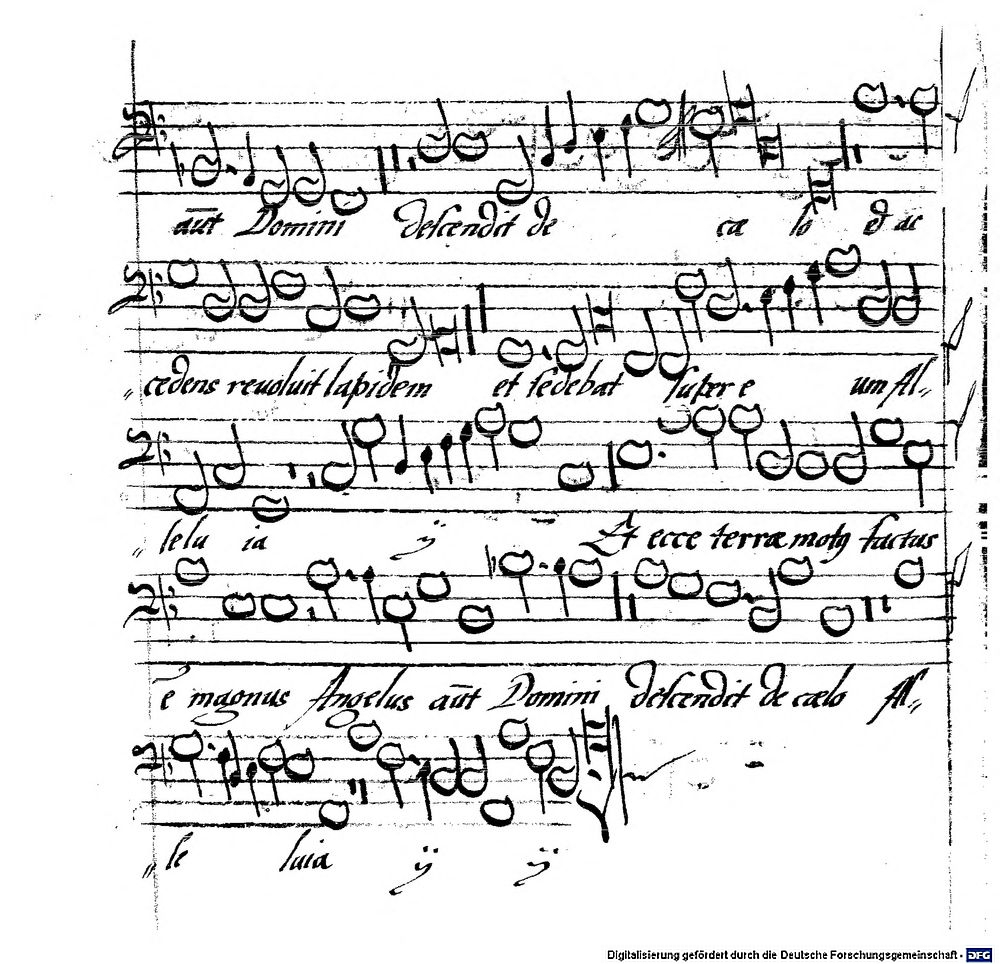 aūt Domini descendit de cæ lo et ac
„ cedens reuoluit lapidem et sedebat super e um Al„
„ lelu ia ÿ Et ecce terræ motꝰ factus
ē magnus Angelus aūt Domini descendit de cælo Al„
„ le luia ÿ ÿ
Digitalisierung gefördert durch die Deutsche Forschungsgemeinschaft - DFG